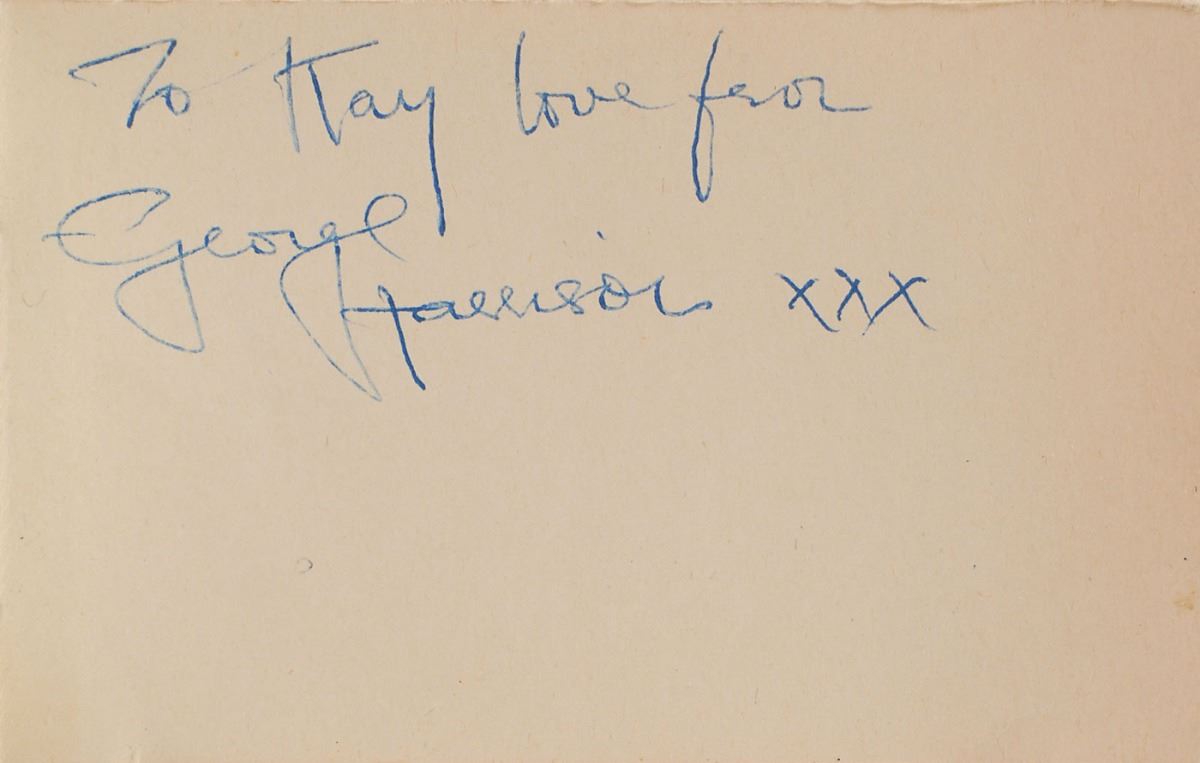 To Kay love from
George
Harrison xxx